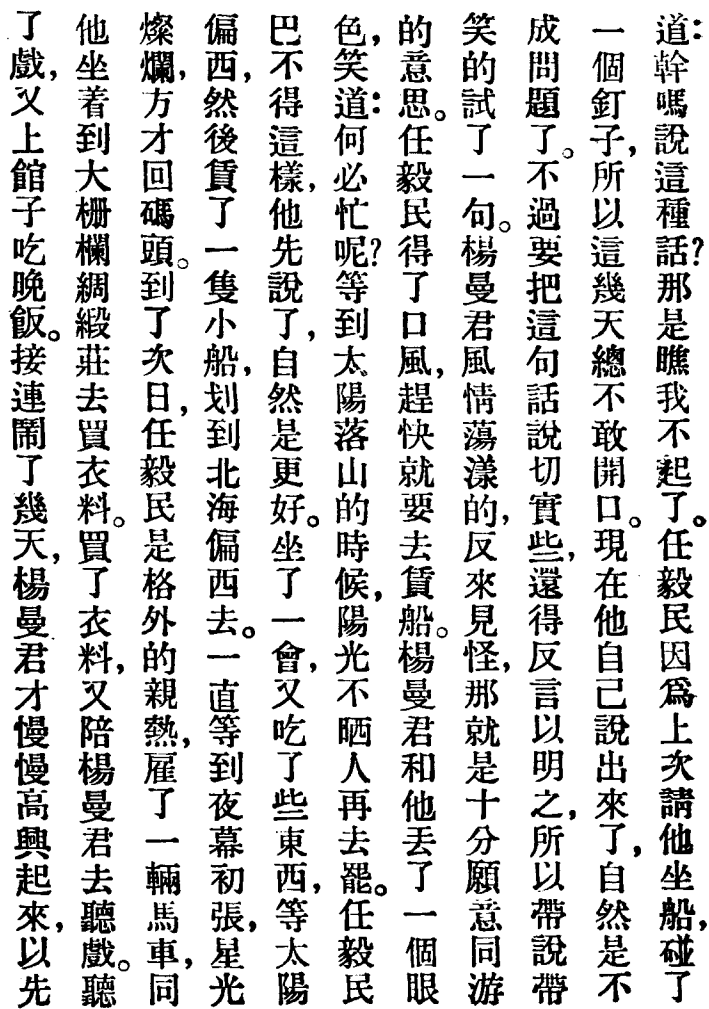 道：幹嗎說這種話？那是瞧我不起了。任毅民因爲上次請他坐船，碰了
一個釘子，所以這幾天總不敢開口。現在他自己說出來了，自然是不
成問題了。不過要把這句話說切實些，還得反言以明之，所以帶說帶
笑的試了一句。楊曼君風情蕩漾的，反來見怪，那就是十分願意同游
的意思。任毅民得了口風，趕快就要去賃船。楊曼君和他丟了一個眼
色，笑道：何必忙呢？等到太陽落山的時候，陽光不晒人再去罷。任毅民
巴不得這樣，他先說了，自然是更好。坐了一會，又吃了些東西，等太陽
偏西，然後賃了一隻小船，划到北海偏西去。一直等到夜幕初張，星光
燦爛，方才回碼頭。到了次日，任毅民是格外的親熱，雇了一輛馬車，同
他坐着到大栅欄綢緞莊去買衣料。買了衣料，又陪楊曼君去聽戲。聽
了戲，又上館子吃晚飯。接連鬧了幾天，楊曼君才慢慢高興起來，以先